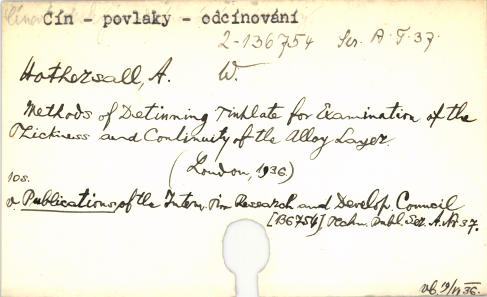 Čín - povlaky - odcínování
2-136754 Ser. A. T. 37.
Hothersall, A. W.
Methods of Detinning Tinplate for Examination of the
Thickness and Continuity of the Alloy Layer.
(London, 1936)
10s.
v. Publications of the Intern. Tin Research and Develop. Council
[136754] Publ. Ser. A. Nr 37.
36.